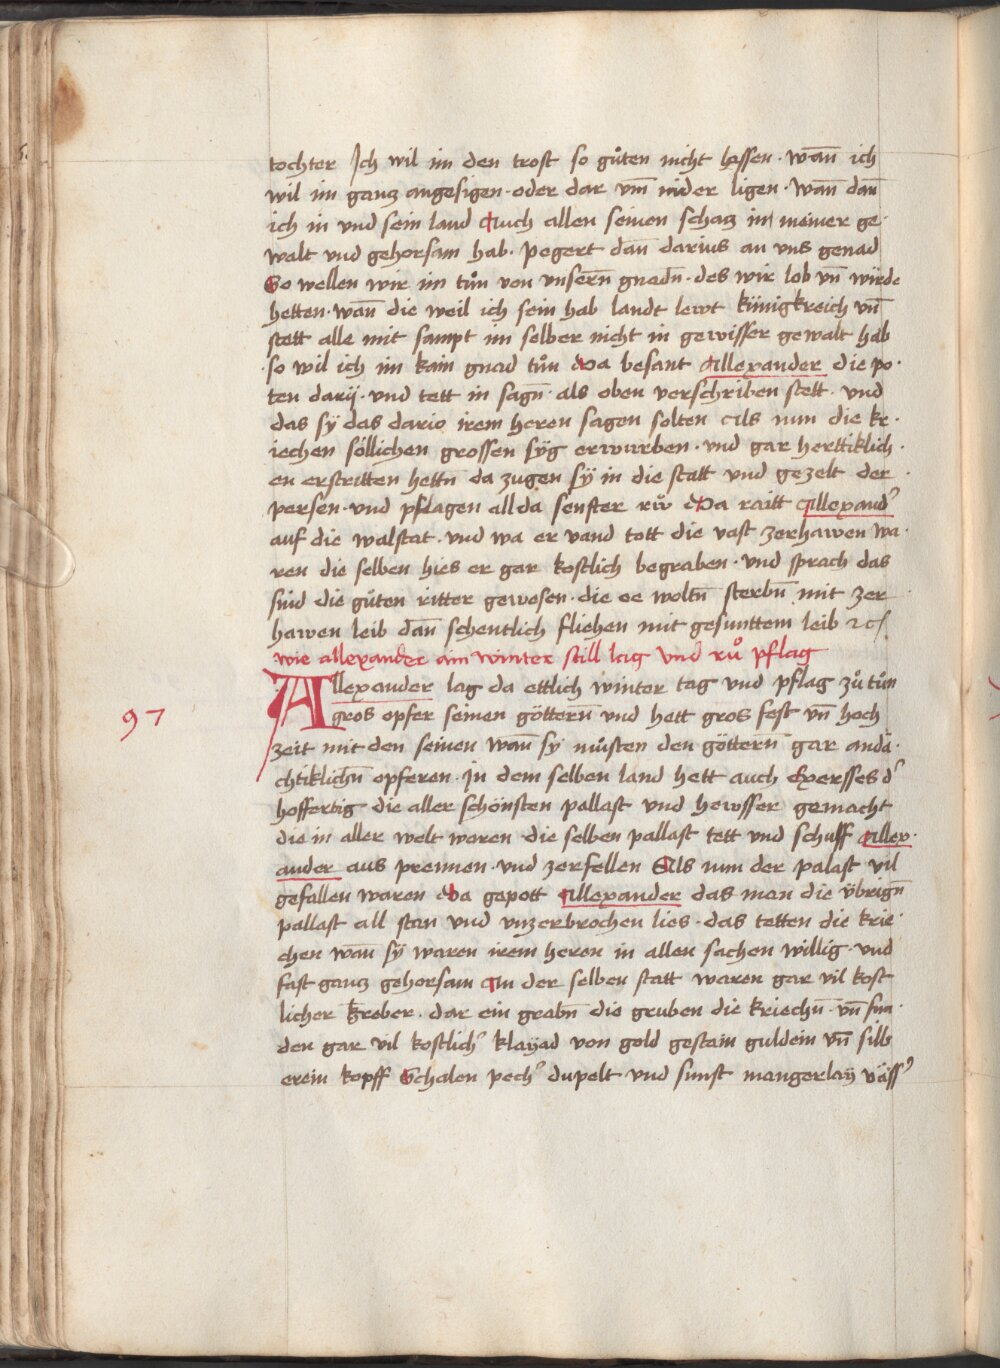 tochter Ich wil im den trost so gůten nicht lassen · wan̄ ich
wil im gancz angesigen · oder dar vm̄ nider ligen · Wan̄ dan̄
ich in vnd sein land Auch allen seinen schacz in meiner ge·
walt vnd gehorsam hab · pegert dan̄ darius an vns genad
So wellen wir im tůn von vnsern̄ gnadn̄ · des wir lob vn̄ wirde
hetten · wan̄ die weil ich sein hab landt lewt künigkreich vn̄
stett alle mit sampt im selber nicht in gewisser gewalt hab
· so wil ich im kain gnad tůn Da besant Allexander die po·
ten darij · vnd tett in sagn̄ · als oben verschriben stett · vnd
das sÿ das dario irem heren sagen solten Als nun die kr·
iechen söllichen grossen sÿg erwurben · vnd gar herttiklich ·
en erstritten hettn̄ da zugen sÿ in die statt vnd gezelt der
persen · vnd pflagen allda senfter rẘ Da raitt Allexand᾽
auf die walstat · vnd wa er vand tott die vast zerhawen wa·
ren die selben hies er gar kostlich begraben · vnd sprach das
sind die gůten ritter gewesen · die ee woltn̄ sterbn̄ mit zer
hawen leib dan̄ schentlich fliehen mit gesunttem leib ꝛc
wie allexander ain winter still lag vnd rů pflag
97
Allexander lag da ettlich winter tag vnd pflag zů tůn
gros opfer seinen göttern̄ vnd hett gros fest vn̄ hoch
zeit mit den seinen wan̄ sÿ můsten den göttern̄ gar andä·
chtiklichn̄ opferen · In dem selben land hett auch Exersses d᾽
hoffertig die aller schönsten pallast vnd hewsser gemacht
die in aller welt waren die selben pallast tett vnd schuff Allex·
ander aus prennen · vnd zerfellen Als nun der palast vil
gefallen waren Da gepott Allexander das man die v̈brign̄
pallast all stan vnd vnzerbrochen lies · das tetten die krie·
chen wan̄ sÿ waren irem heren in allen sachen willig · vnd
fast gancz gehorsam In der selben statt waren gar vil kost
licher greber · dar ein grabn̄ die gruben die kriechn̄ · vn̄ fun·
den gar vil kostlich᾽ klaÿad von gold gestain guldein vn̄ silb
erein kopff Schalen pech᾽ dupelt vnd sunst mangerlaÿ väss᾽